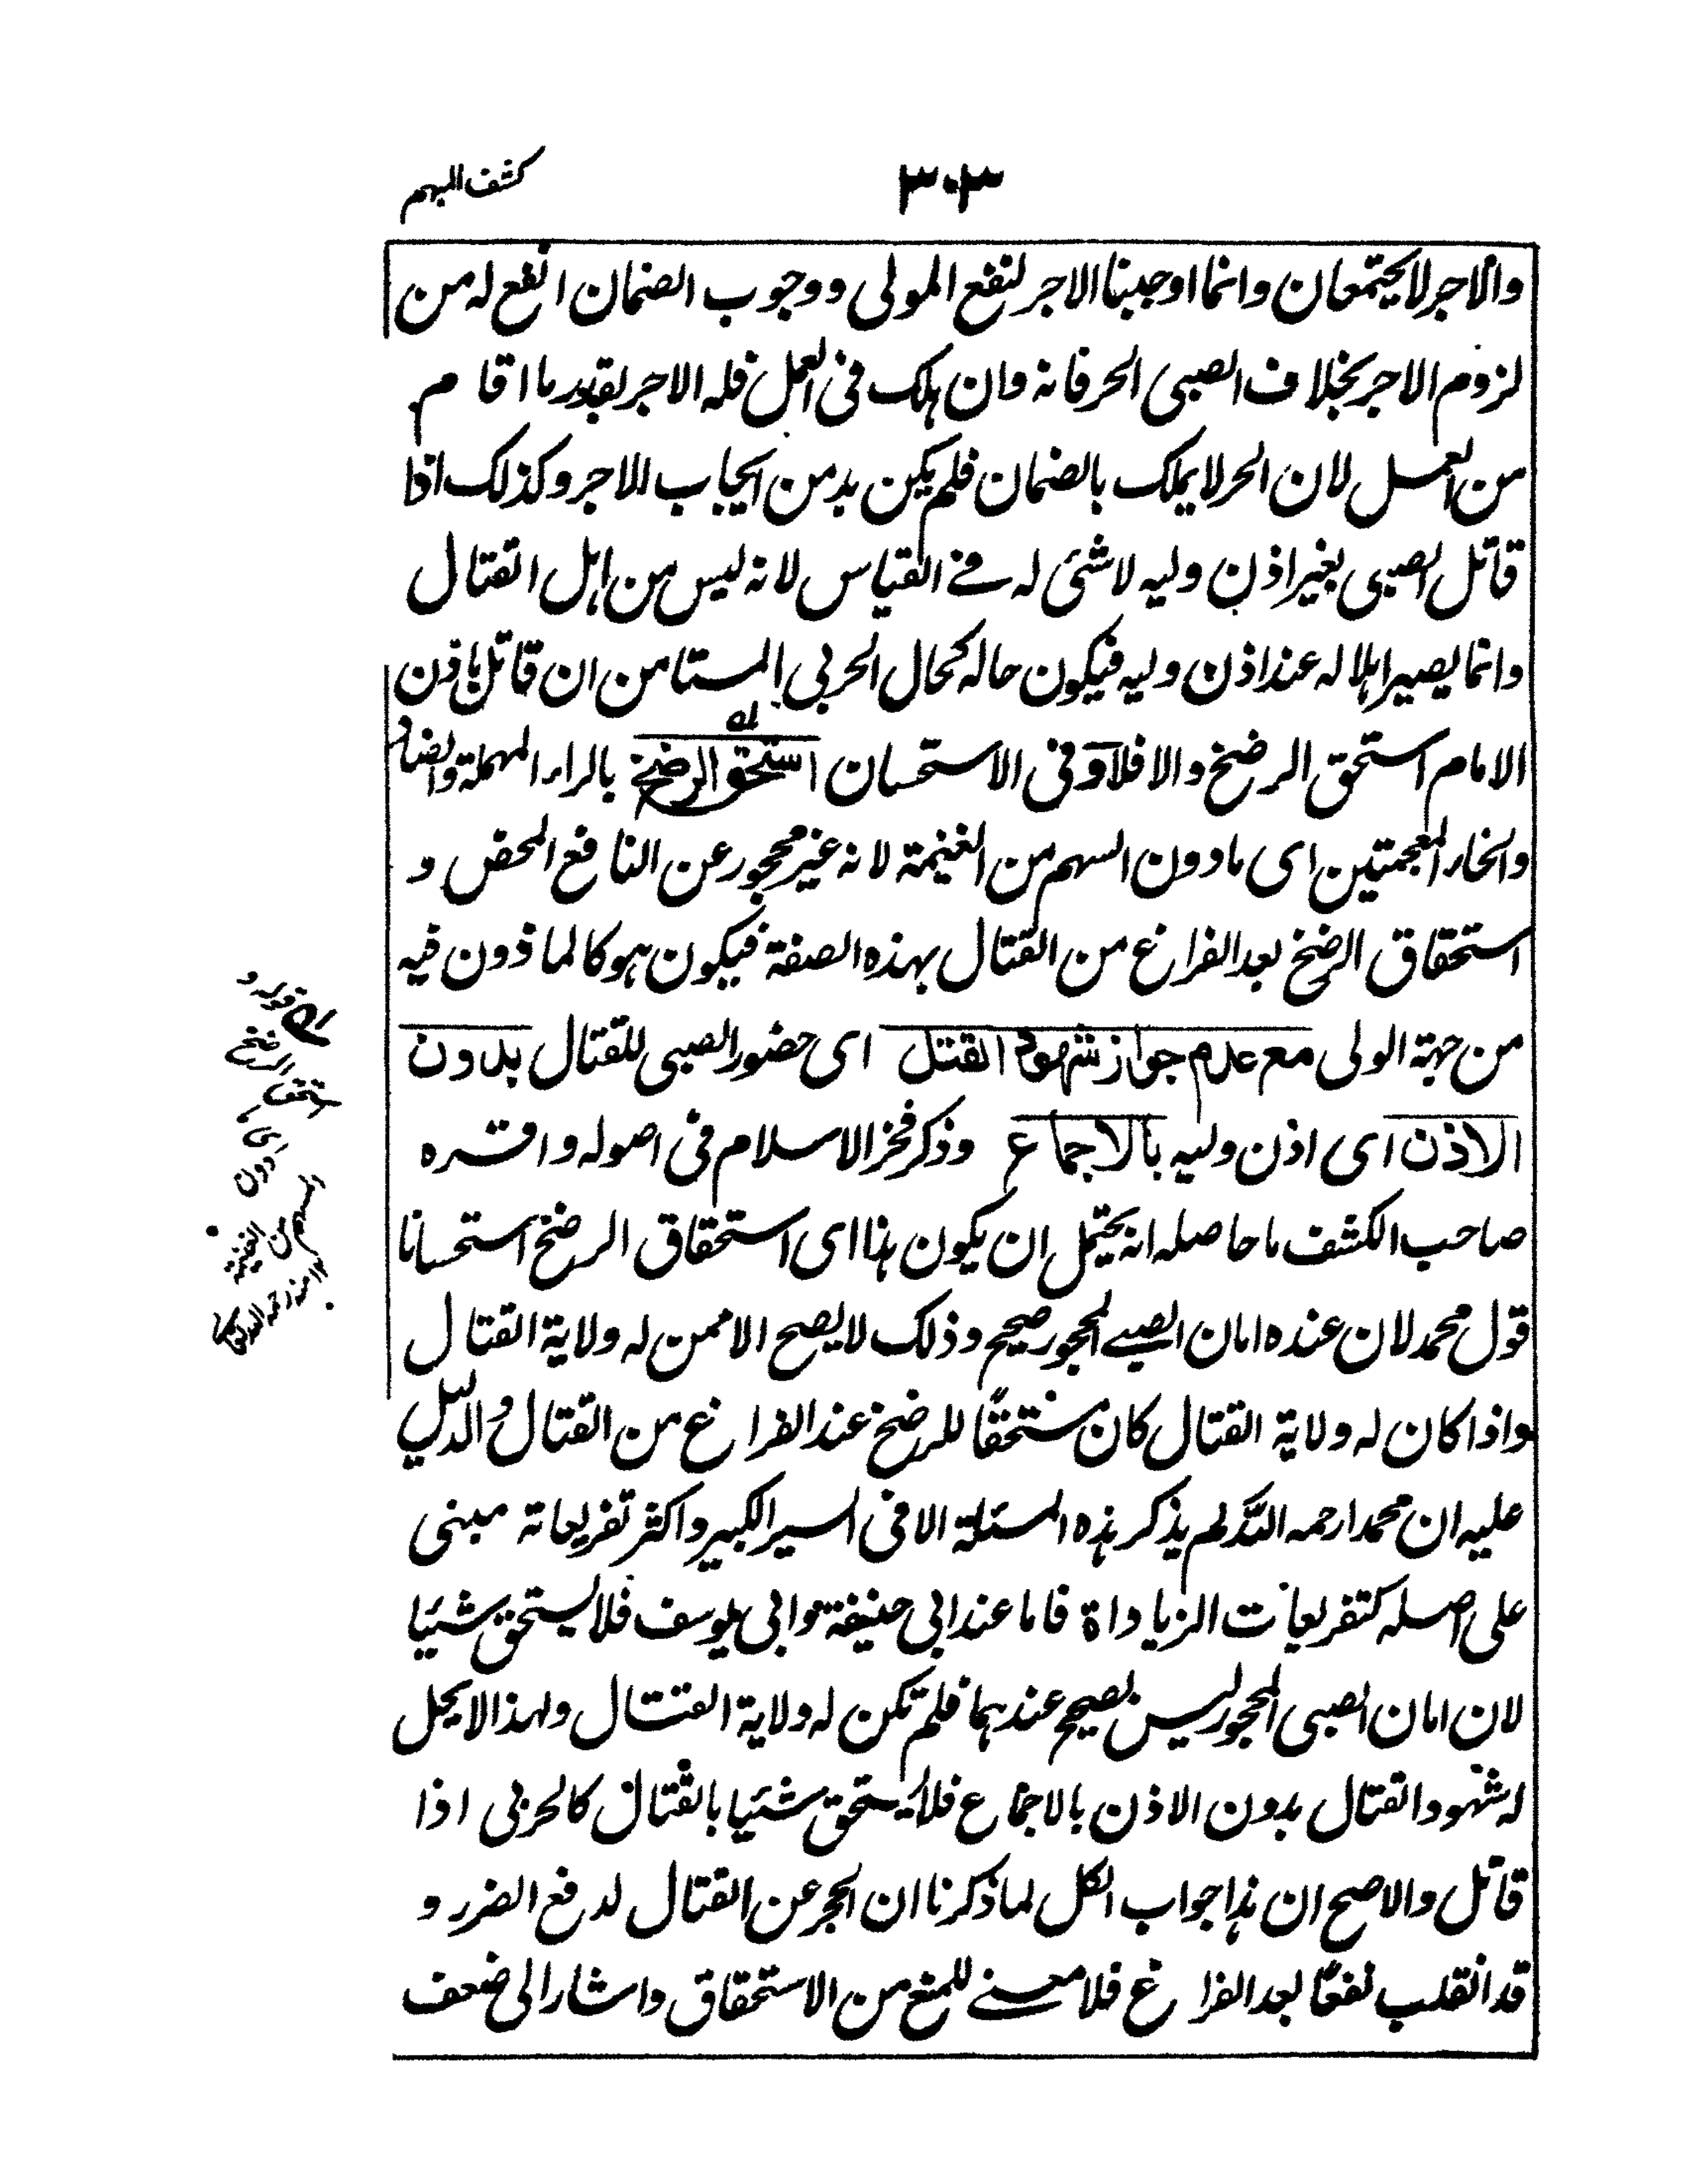 كشف المبهم
٣٠٣
والاجر لا يجتمعان وانما اوجبنا الاجر لنفع المولى ووجوب الضمان انفع له من
لزوم الاجر بخلاف الصبى الحر فانه وان هلك فى العمل فله الاجر بقدر ما اقام
من العمل لان الحر لا يملك بالضمان فلم يكن بد من ايجاب الاجر وكذلك اذا
قاتل الصبى بغير اذن وليه لا شئ له فے القياس لانه ليس من اهل القتال
وانما يصير اهلا له عند اذن وليه فيكون حاله كحال الحربى المستامن ان قاتل باذن
الامام استحق الرضخ والا فلا وفى الاستحسان استحق الرضخ بالراء المهملة والضاد
والخاء المعجمتين اى ما دون السهم من الغنيمة لانه غير محجور عن النافع المحض و
استحقاق الرضخ بعد الفراغ من القتال بهذه الصفة فيكون هو كالماذون فيه
من جهة الولى مع عدم جواز شهود القتل اى حضور الصبى للقتال بدون
الاذن اى اذن وليه بالاجماع وذكر فخر الاسلام فى اصوله واقره
صاحب الكشف ما حاصله انه يحتمل ان يكون هذا اى استحقاق الرضخ استحسانا
قول محمد لان عنده امان الصبے المحجور صحيح وذلك لا يصح الا ممن له ولاية القتال
واذا كان له ولاية القتال كان مستحقا للرضخ عند الفراغ من القتال والدليل
عليه ان محمدا رحمه الله لم يذكر هذه المسئلة الا فى السير الكبير واكثر تفريعاته مبنى
على اصله كتفريعات الزياداة فاما عند ابى حنيفة وابى يوسف فلا يستحق شئيا
لان امان الصبى المحجور ليس بصحيح عندهما فلم تكن له ولاية القتال ولهذا لا يحل
له شهود القتال بدون الاذن بالاجماع فلا يستحق شئيا بالقتال كالحربى اذا
قاتل والاصح ان هذا جواب الكل لما ذكرنا ان الحجر عن القتال لدفع الضرر و
قد انقلب نفعا بعد الفراغ فلا معنے للمنع من الاستحقاق واشار الى ضعف
قوله و
الرضخ
استحق
اى
دون
السهم من
الغنيمة
١٢ منه رحمه الله تعالى